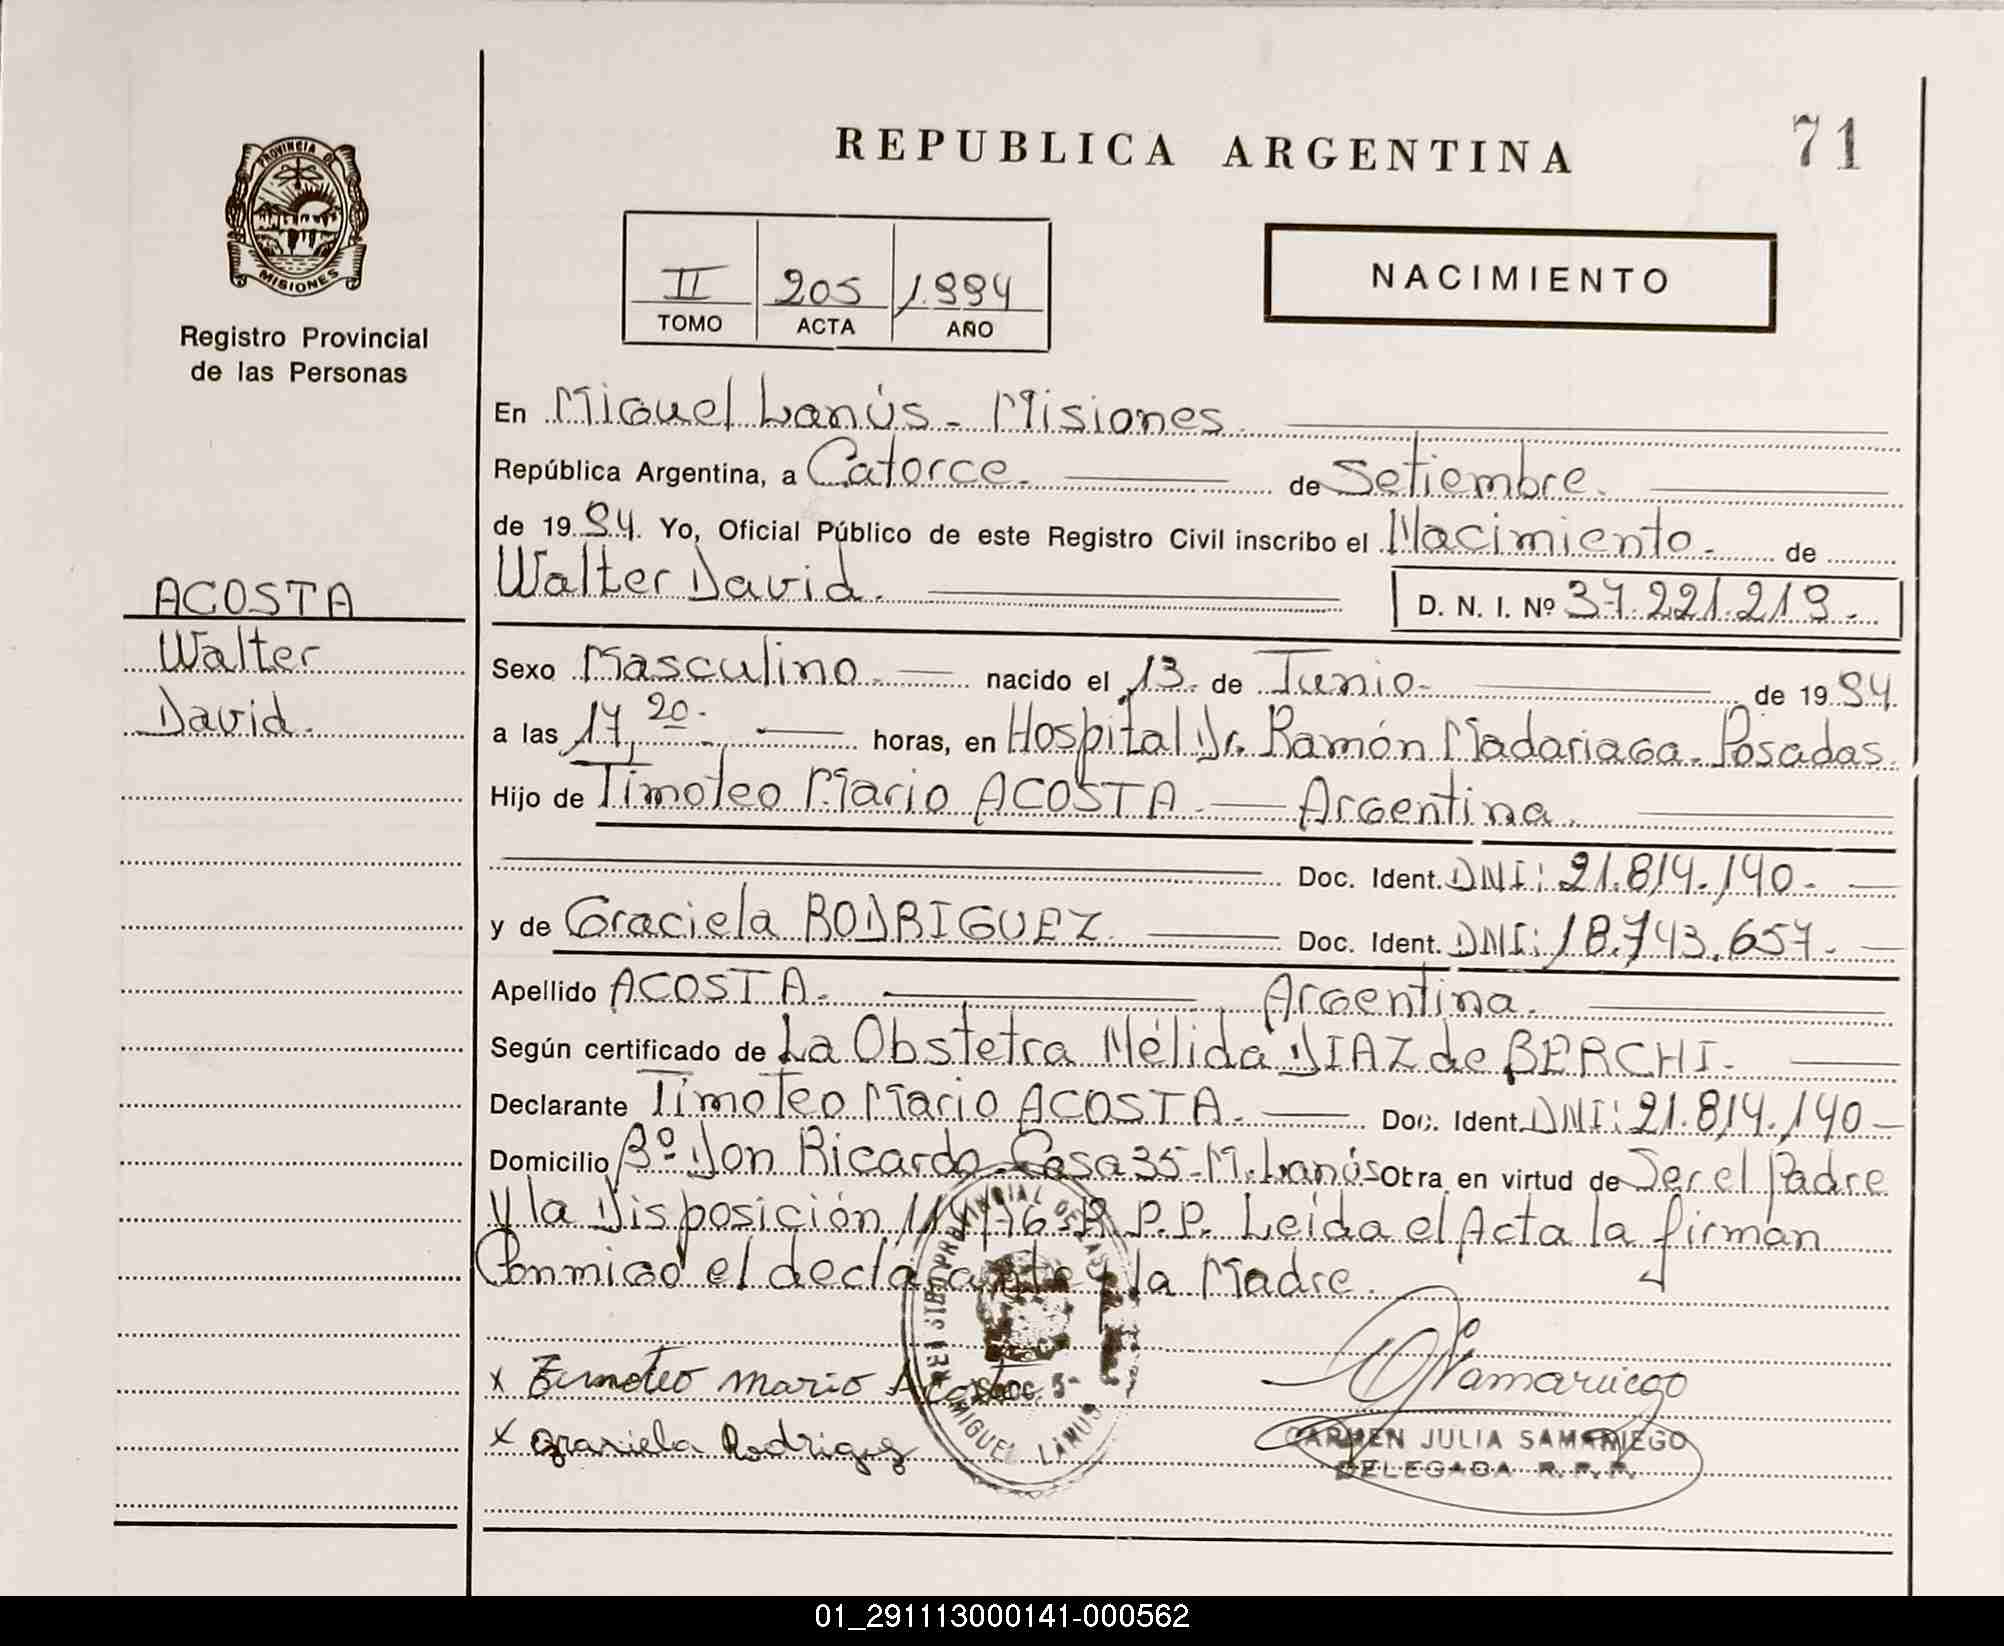 REPUBLICA ARGENTINA
71
PROVINCIA DE
MISIONES
Registro Provincial
de las Personas
II 205 1994
TOMO ACTA AÑO
NACIMIENTO
En Miguel Lanús - Misiones
República Argentina, a Catorce. de Setiembre.
de 19 94. Yo, Oficial Público de este Registro Civil inscribo el Nacimiento. de
Walter David. D. N. I. Nº 37.221.219.
ACOSTA
Walter
David.
Sexo Masculino. nacido el 13. de Junio. de 19 94.
a las 17, 20. horas, en Hospital Dr. Ramón Madariaga. Posadas.
Hijo de Timoteo Mario ACOSTA. Argentina.
Doc. Ident. DNI: 21.814.140.
y de Graciela RODRIGUEZ Doc. Ident. DNI: 18.743.657.
Apellido ACOSTA. Argentina.
Según certificado de La Obstetra Nélida DIAZ de BERCHI.
Declarante Timoteo Mario ACOSTA. Doc. Ident. DNI: 21.814.140
Domicilio Bº Don Ricardo Casa 35 - M. Lanús Otra en virtud de Ser el Padre
y la Disposición R.P.P. Leída el Acta la firman
Conmigo el declarante y la Madre.
x Timoteo Mario Acosta
x Grasiela Rodrigez
MIGUEL LANUS
Samaniego
CARMEN JULIA SAMANIEGO
DELEGADA R.P.P.
01_291113000141-000562